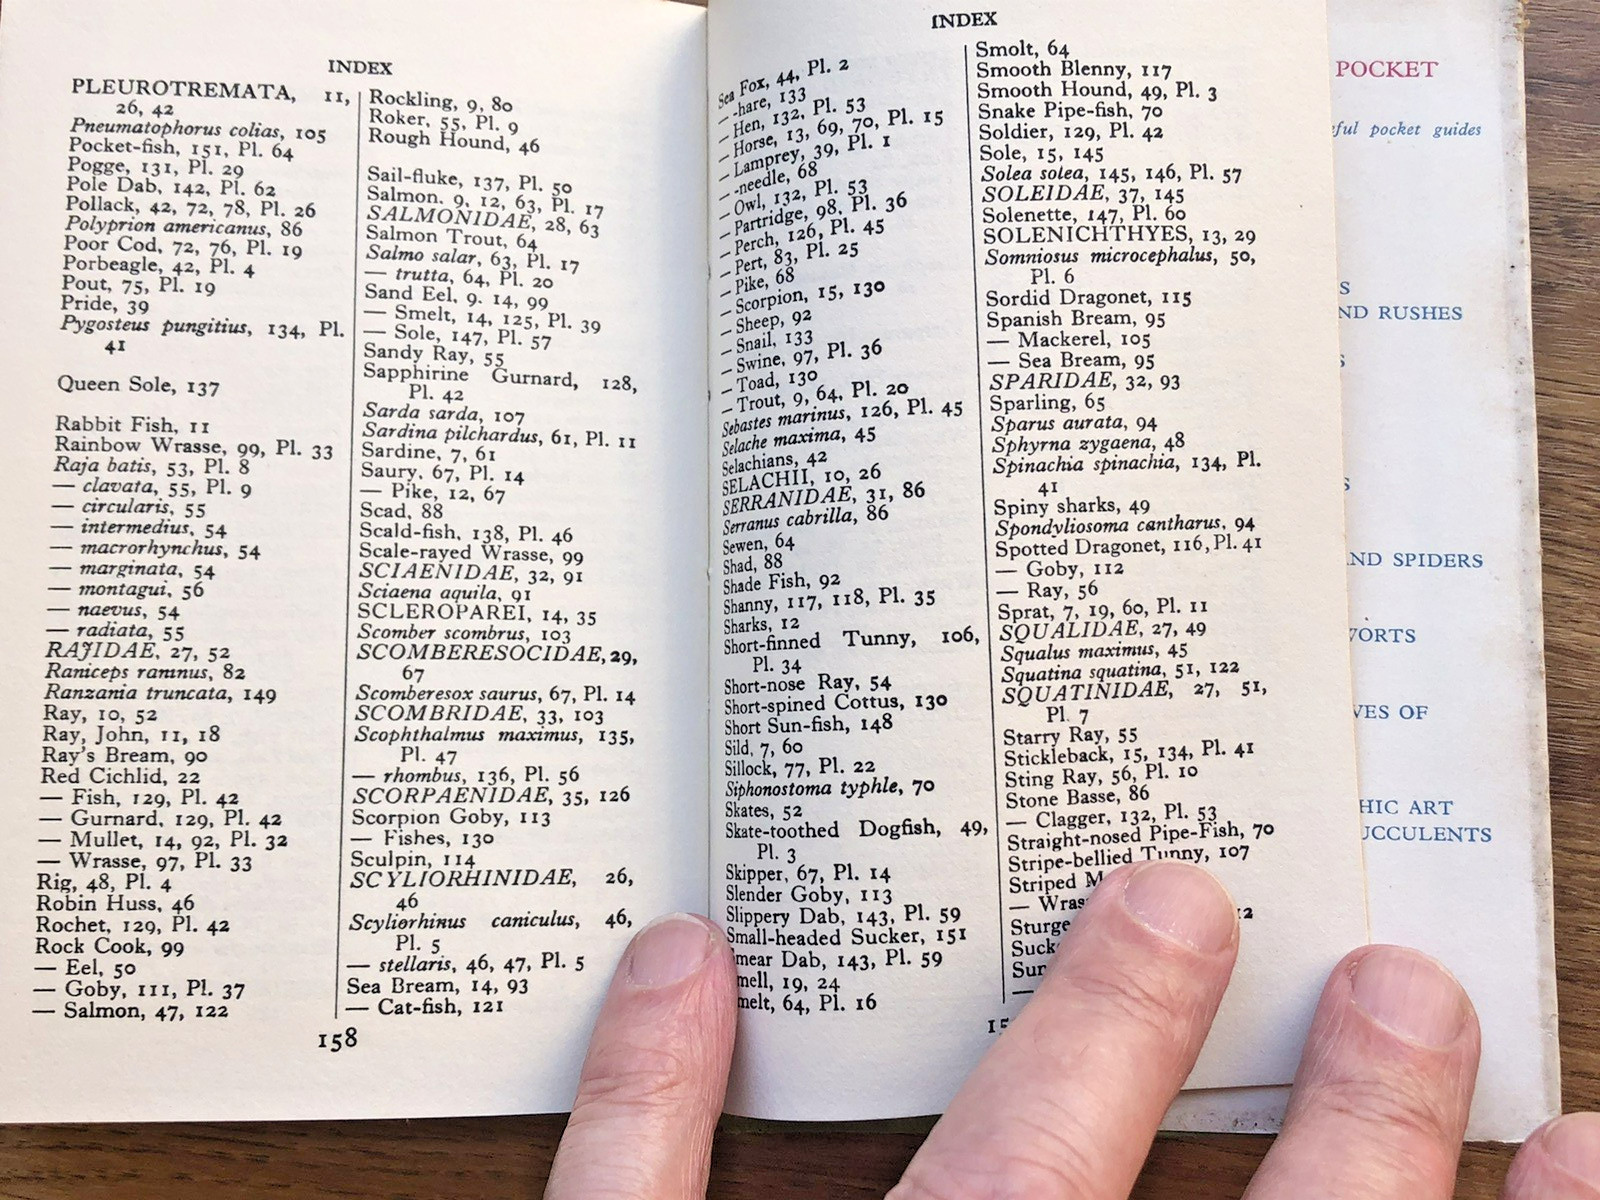 INDEX
PLEUROTREMATA, 11,
26, 42
Pneumatophorus colias, 105
Pocket-fish, 151, Pl. 64
Pogge, 131, Pl. 29
Pole Dab, 142, Pl. 62
Pollack, 42, 72, 78, Pl. 26
Polyprion americanus, 86
Poor Cod, 72, 76, Pl. 19
Porbeagle, 42, Pl. 4
Pout, 75, Pl. 19
Pride, 39
Pygosteus pungitius, 134, Pl.
41
Queen Sole, 137
Rabbit Fish, 11
Rainbow Wrasse, 99, Pl. 33
Raja batis, 53, Pl. 8
— clavata, 55, Pl. 9
— circularis, 55
— intermedius, 54
— macrorhynchus, 54
— marginata, 54
— montagui, 56
— naevus, 54
— radiata, 55
RAJIDAE, 27, 52
Raniceps raninus, 82
Ranzania truncata, 149
Ray, 10, 52
Ray, John, 11, 18
Ray's Bream, 90
Red Cichlid, 22
— Fish, 129, Pl. 42
— Gurnard, 129, Pl. 42
— Mullet, 14, 92, Pl. 32
— Wrasse, 97, Pl. 33
Rig, 48, Pl. 4
Robin Huss, 46
Rochet, 129, Pl. 42
Rock Cook, 99
— Eel, 50
— Goby, 111, Pl. 37
— Salmon, 47, 122
Rockling, 9, 80
Roker, 55, Pl. 9
Rough Hound, 46
Sail-fluke, 137, Pl. 50
Salmon. 9, 12, 63, Pl. 17
SALMONIDAE, 28, 63
Salmon Trout, 64
Salmo salar, 63, Pl. 17
— trutta, 64, Pl. 20
Sand Eel, 9. 14, 99
— Smelt, 14, 125, Pl. 39
— Sole, 147, Pl. 57
Sandy Ray, 55
Sapphirine Gurnard, 128,
Pl. 42
Sarda sarda, 107
Sardina pilchardus, 61, Pl. 11
Sardine, 7, 61
Saury, 67, Pl. 14
— Pike, 12, 67
Scad, 88
Scald-fish, 138, Pl. 46
Scale-rayed Wrasse, 99
SCIAENIDAE, 32, 91
Sciaena aquila, 91
SCLEROPAREI, 14, 35
Scomber scombrus, 103
SCOMBERESOCIDAE, 29,
67
Scomberesox saurus, 67, Pl. 14
SCOMBRIDAE, 33, 103
Scophthalmus maximus, 135,
Pl. 47
— rhombus, 136, Pl. 56
SCORPAENIDAE, 35, 126
Scorpion Goby, 113
— Fishes, 130
Sculpin, 114
SCYLIORHINIDAE, 26,
46
Scyliorhinus caniculus, 46,
Pl. 5
— stellaris, 46, 47, Pl. 5
Sea Bream, 14, 93
— Cat-fish, 121
158
INDEX
Sea Fox, 44, Pl. 2
— -hare, 133
— Hen, 132, Pl. 53
— Horse, 13, 69, 70, Pl. 15
— Lamprey, 39, Pl. 1
— -needle, 68
— Owl, 132, Pl. 53
— Partridge, 98, Pl. 36
— Perch, 126, Pl. 45
— Pert, 83, Pl. 25
— Pike, 68
— Scorpion, 15, 130
— Sheep, 92
— Snail, 133
— Swine, 97, Pl. 36
— Toad, 130
— Trout, 9, 64, Pl. 20
Sebastes marinus, 126, Pl. 45
Selache maxima, 45
Selachians, 42
SELACHII, 10, 26
SERRANIDAE, 31, 86
Serranus cabrilla, 86
Sewen, 64
Shad, 88
Shade Fish, 92
Shanny, 117, 118, Pl. 35
Sharks, 12
Short-finned Tunny, 106,
Pl. 34
Short-nose Ray, 54
Short-spined Cottus, 130
Short Sun-fish, 148
Sild, 7, 60
Sillock, 77, Pl. 22
Siphonostoma typhle, 70
Skates, 52
Skate-toothed Dogfish, 49,
Pl. 3
Skipper, 67, Pl. 14
Slender Goby, 113
Slippery Dab, 143, Pl. 59
Small-headed Sucker, 151
mear Dab, 143, Pl. 59
mell, 19, 24
melt, 64, Pl. 16
Smolt, 64
Smooth Blenny, 117
Smooth Hound, 49, Pl. 3
Snake Pipe-fish, 70
Soldier, 129, Pl. 42
Sole, 15, 145
Solea solea, 145, 146, Pl. 57
SOLEIDAE, 37, 145
Solenette, 147, Pl. 60
SOLENICHTHYES, 13, 29
Somniosus microcephalus, 50,
Pl. 6
Sordid Dragonet, 115
Spanish Bream, 95
— Mackerel, 105
— Sea Bream, 95
SPARIDAE, 32, 93
Sparling, 65
Sparus aurata, 94
Sphyrna zygaena, 48
Spinachia spinachia, 134, Pl.
41
Spiny sharks, 49
Spondyliosoma cantharus, 94
Spotted Dragonet, 116, Pl. 41
— Goby, 112
— Ray, 56
Sprat, 7, 19, 60, Pl. 11
SQUALIDAE, 27, 49
Squalus maximus, 45
Squatina squatina, 51, 122
SQUATINIDAE, 27, 51,
Pl. 7
Starry Ray, 55
Stickleback, 15, 134, Pl. 41
Sting Ray, 56, Pl. 10
Stone Basse, 86
— Clagger, 132, Pl. 53
Straight-nosed Pipe-Fish, 70
Stripe-bellied Tunny, 107
Striped M
— Wras
Sturge 12
Suck
Sun
—
15
POCKET
eful pocket guides
S
ND RUSHES
S
S
AND SPIDERS
WORTS
VES OF
HIC ART
UCCULENTS